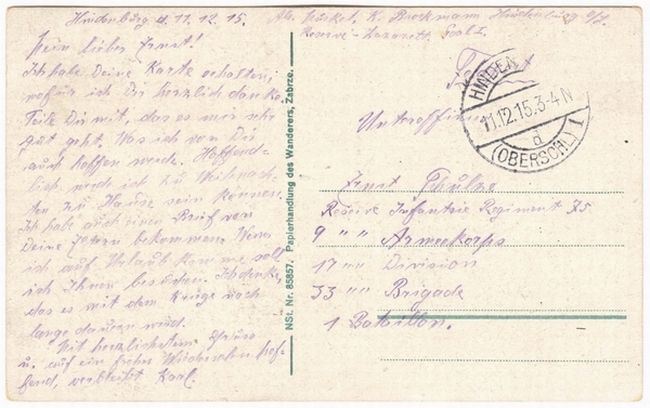 Hindenburg d. 11.12.15.
Mein lieber Ernst!
Ich habe Deine Karte erhalten,
wofür ich Dir herzlich danke.
Teile Dir mit, das es mir sehr
gut geht. Was ich von Dir
auch hoffen werde. Hoffend-
lich werde ich zu Weihnach-
ten zu Hause sein können.
Ich habe auch einen Brief von
Deine Eltern bekommen. Wenn
ich auf Urlaub komme soll
ich Ihnen besuchen. Ich denke,
das es mit dem Kriege noch
lange dauern wird.
Mit herzlichstem Gruss
u. auf ein frohes Wiedersehn hof-
fend, verbleibt Karl.
NSt. Nr. 85857. Papierhandlung des Wanderers, Zabrze.
Abs. K. Brockmann Hindenburg O/S.
Reserve-Lazarett. Saal I.
HINDENB
11.12.15.3-4N
d
(OBERSCHL) 1
Unteroffizier
Ernst Schulze
Reserve Infanterie Regiment 75
9 " " Armeekorps
17 " " Division
33 " " Brigade
1 Bataillon.